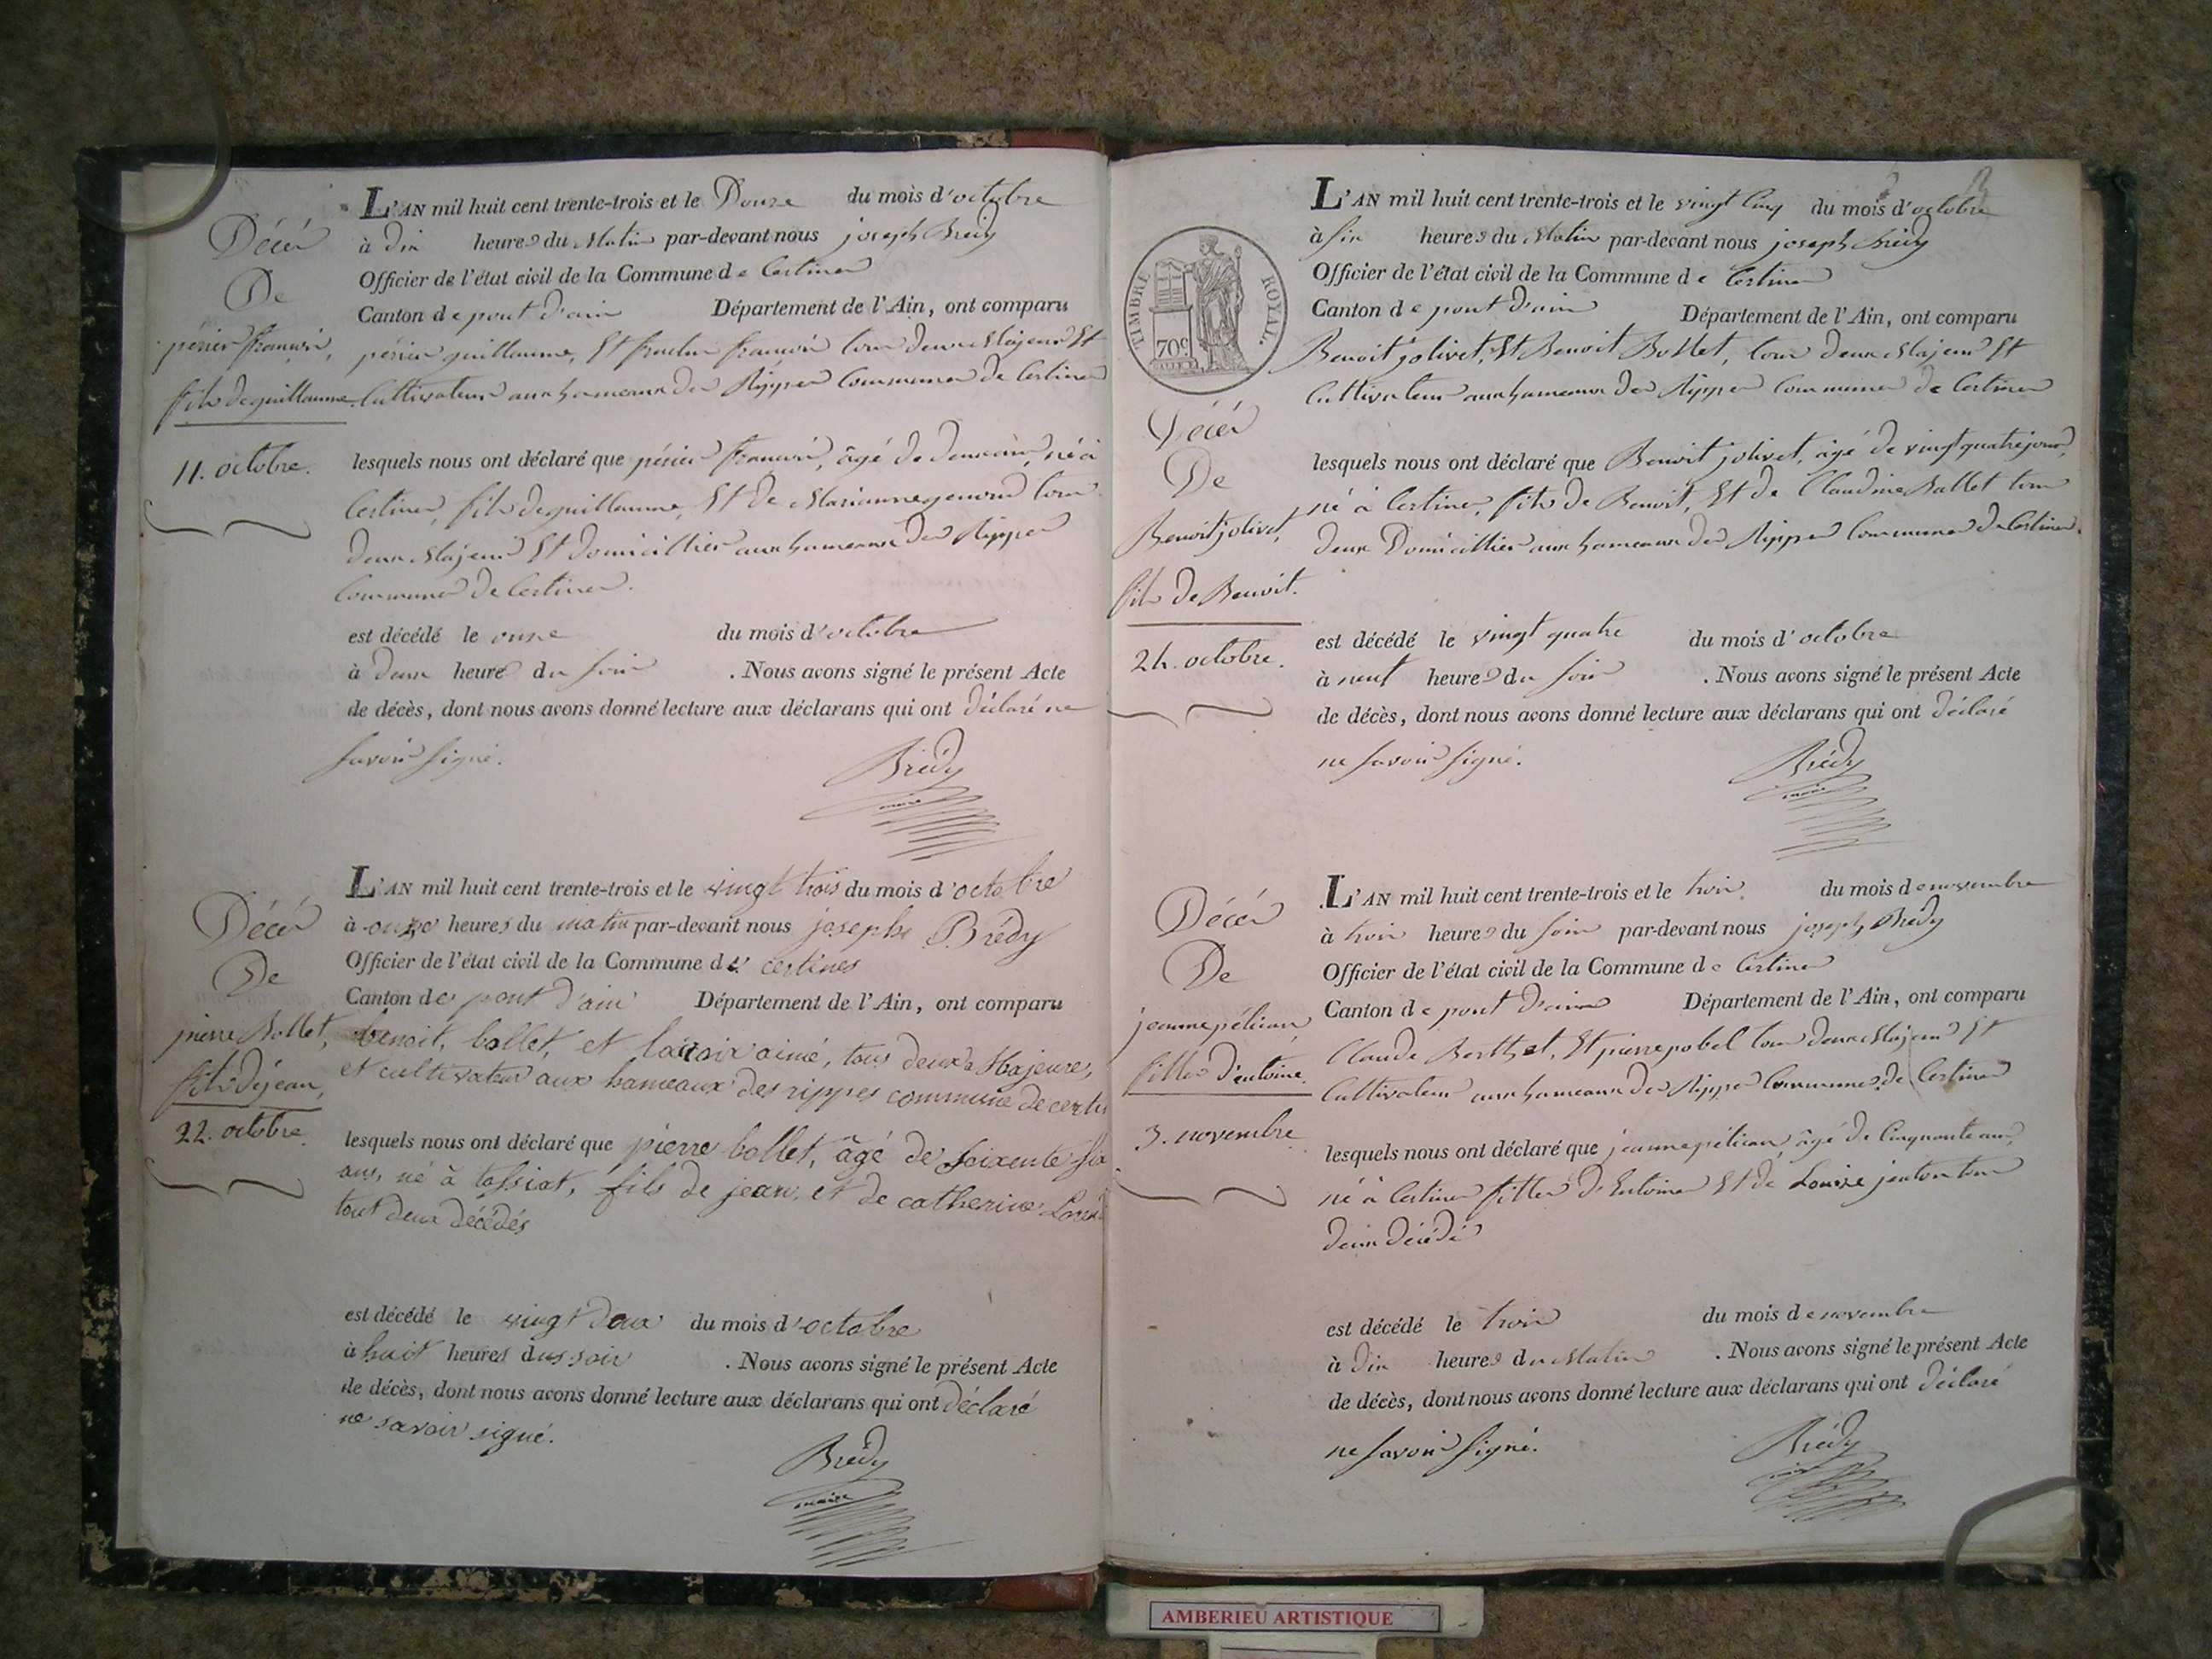 Décès
De
périer françois,
fils de guillaume.
11. octobre.
L'AN mil huit cent trente-trois et le Douze du mois d'octobre
à dix heures du Matin par-devant nous joseph Brédy
Officier de l'état civil de la Commune de Certines
Canton de pont d'ain Département de l'Ain, ont comparu
périer guillaume, Et françois tous deux Majeurs Et
Cultivateurs aux hameaux des Rippes Commune de Certines
lesquels nous ont déclaré que périer françois, âgé de deux ans, né à
Certines, fils de guillaume, Et de Marianne tous
deux Majeurs Et domicilliés aux hameaux des Rippes
Commune de Certines.
est décédé le onze du mois d'octobre
à deux heures du soir . Nous avons signé le présent Acte
de décès, dont nous avons donné lecture aux déclarans qui ont déclaré ne
savoir signé.
Brédy
maire
Décès
De
pierre Bollet,
fils de jean,
22. octobre.
L'AN mil huit cent trente-trois et le vingt trois du mois d'octobre
à onze heures du matin par-devant nous josephe Brédy
Officier de l'état civil de la Commune de certines
Canton de pont d'ain Département de l'Ain, ont comparu
benoit, bollet, et lacroix aimé, tous deux Majeure,
et cultivateur aux hameaux des rippes commune de certi
lesquels nous ont déclaré que pierre bollet, âgé de soixente six
ans, né à tossiat, fils de jean, et de catherine
tout deux décédés
est décédé le vingt deux du mois d'octobre
à huit heures du soir . Nous avons signé le présent Acte
de décès, dont nous avons donné lecture aux déclarans qui ont déclaré
ne savoir signé.
Brédy
maire
TIMBRE ROYAL.
70c
Décès
De
Benoit jolivet,
fils de Benoit.
24. octobre.
L'AN mil huit cent trente-trois et le vingt cinq du mois d'octobre
à six heures du Matin par-devant nous joseph brédy
Officier de l'état civil de la Commune de Certines
Canton de pont d'ain Département de l'Ain, ont comparu
Benoit jolivet, Et Benoit Bollet, tous deux Majeurs Et
Cultivateurs aux hameaux des Rippes Commune de Certines
lesquels nous ont déclaré que Benoit jolivet, âgé de vingt quatre jours,
né à Certines, fils de Benoit, Et de Claudine Ballet tous
deux Domicilliés aux hameaux des Rippes Commune de Certines.
est décédé le vingt quatre du mois d'octobre
à neuf heures du soir . Nous avons signé le présent Acte
de décès, dont nous avons donné lecture aux déclarans qui ont déclaré
ne savoir signé.
Brédy
maire
Décès
De
jeanne pélician,
fille d'antoine.
3. novembre
L'AN mil huit cent trente-trois et le trois du mois de novembre
à trois heures du soir par-devant nous joseph Brédy
Officier de l'état civil de la Commune de Certines
Canton de pont d'ain Département de l'Ain, ont comparu
Claude Berthet, Et pierre pobel tous deux Majeurs Et
Cultivateurs aux hameaux des Rippes Commune de Certines
lesquels nous ont déclaré que jeanne pélician, âgé de Cinquante ans,
né à Certines fille d'Entoine Et de Louise jenton tous
deux décédé
est décédé le trois du mois de novembre
à dix heures du Matin . Nous avons signé le présent Acte
de décès, dont nous avons donné lecture aux déclarans qui ont déclaré
ne savoir signé.
Brédy
maire
AMBERIEU ARTISTIQUE